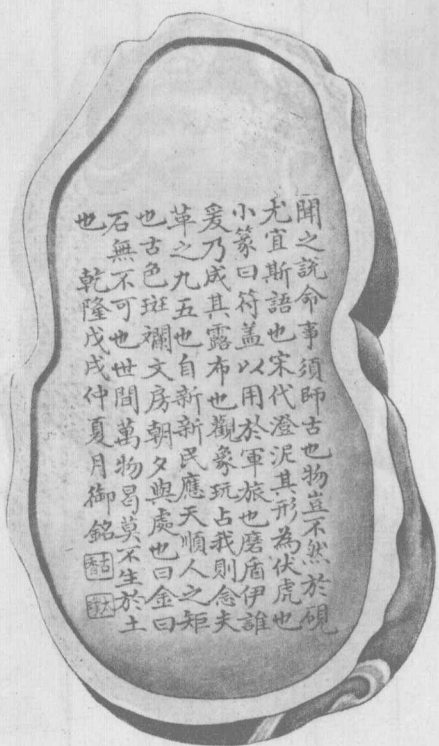 聞之說命事須師古也物豈不然於硯
尤宜斯語也宋代澄泥其形為伏虎也
小篆曰符盖以用於軍旅也磨盾伊誰
爰乃成其露布也觀象玩占我則念夫
革之九五也自新新民應天順人之矩
也古色斑斕文房朝夕與處也曰金曰
石無不可也世間萬物曷莫不生於土
也 乾隆戊戌仲夏月御銘
古香
太璞